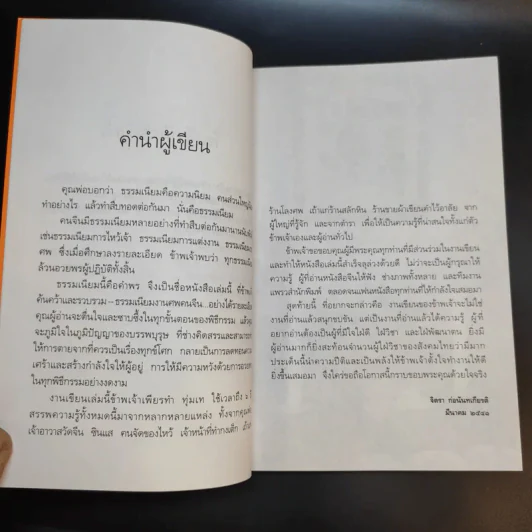 คำนำผู้เขียน
คุณพ่อบอกว่า ธรรมเนียมคือความนิยม คนส่วนใหญ่
ทำอย่างไร แล้วทำสืบทอดต่อกันมา นั่นคือธรรมเนียม
คนจีนมีธรรมเนียมหลายอย่างที่ทำสืบต่อกันมานาน
เช่นธรรมเนียมการไหว้เจ้า ธรรมเนียมการแต่งงาน
ศพ ซึ่งเมื่อศึกษาลงรายละเอียด ข้าพเจ้าพบว่า
ล้วนอวยพรผู้ปฏิบัติทั้งสิ้น
ธรรมเนียมนี้คือคำพร จึงเป็นชื่อหนังสือเล่มนี้
ค้นคว้าและรวบรวม—ธรรมเนียมงานศพคนจีน...อย่างได้
คุณผู้อ่านจะตื่นใจและซาบซึ้งในทุกขั้นตอนของพิธีกรรม
จะภูมิใจในภูมิปัญญาของบรรพบุรุษ ที่ช่างคิดสรรและ
ให้การตายจากที่ควรเป็นเรื่องทุกข์โศก กลายเป็นการลดทอนความ
เศร้าและสร้างกำลังใจให้ผู้อยู่ การให้มีความหวังด้วยการ
ในทุกพิธีกรรมอย่างงดงาม
งานเขียนเล่มนี้ข้าพเจ้าเพียรทำ ทุ่มเท ใช้เวลาถึง ๒
สรรพความรู้ทั้งหมดนี้มาจากหลากหลายแหล่ง ทั้งจาก
เจ้าอาวาสวัดจีน ซินแส คนจัดของไหว้ เจ้าหน้าที่ทำกงเต๊ก
ร้านโลงศพ เถ้าแก่ร้านสลักหิน ร้านขายผ้าเขียนคำไว้อาลัย จาก
ผู้ใหญ่ที่รู้จัก และจากตำรา เพื่อให้เป็นความรู้ที่น่าสนใจทั้งแก่ตัว
ข้าพเจ้าเองและผู้อ่านทั่วไป
ข้าพเจ้าขอขอบคุณผู้มีพระคุณทุกท่านที่มีส่วนร่วมในงานเขียน
และทำให้หนังสือเล่มนี้สำเร็จลุล่วงด้วยดี ไม่ว่าจะเป็นผู้กรุณาให้
ความรู้ ผู้ที่อ่านหนังสือจีนให้ฟัง ช่างภาพทั้งหลาย และทีมงาน
แพรวสำนักพิมพ์ ตลอดจนแฟนหนังสือทุกท่านที่ให้กำลังใจเสมอมา
สุดท้ายนี้ ที่อยากจะกล่าวคือ งานเขียนของข้าพเจ้าจะไม่ใช่
งานที่อ่านแล้วสนุกชบขัน แต่เป็นงานที่อ่านแล้วได้ความรู้ ผู้ที่
อยากอ่านต้องเป็นผู้ที่มีใจใฝ่ดี ใฝ่วิชา และใฝ่พัฒนาตน ยิ่งมี
ผู้อ่านมากก็ยิ่งสะท้อนจำนวนผู้ใฝ่วิชาของสังคมไทยว่ามีมาก
ประเด็นนี้น่าความปีติและเป็นพลังให้ข้าพเจ้าตั้งใจทำงานให้ดี
ยิ่งขึ้นเสมอมา จึงใคร่ขอถือโอกาสนี้กราบขอบพระคุณด้วยใจจริง
จิตรา ก่อนันทเกียรติ
มีนาคม ๒๕๔๑